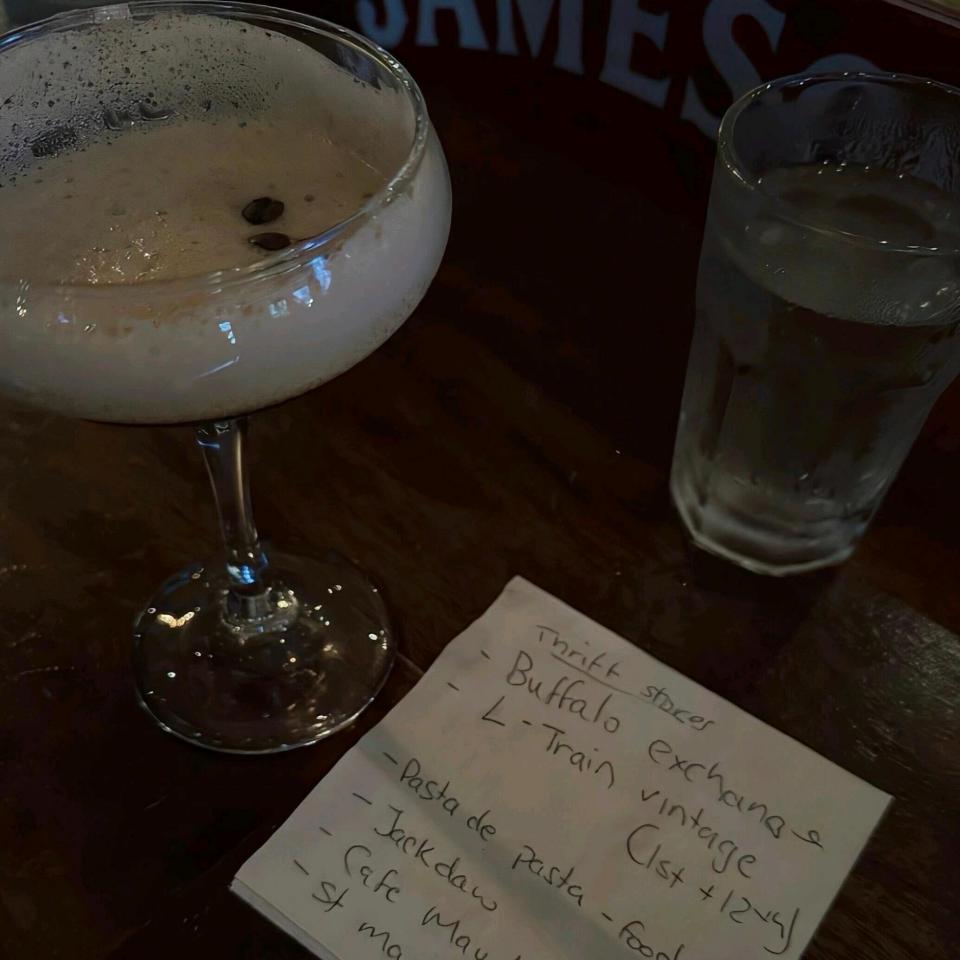 JAMESO
Thrift stores
- Buffalo exchange
- L-Train vintage
(1st + 12
- Pasta de pasta - food
- Jackdaw
- Cafe May
- St ma